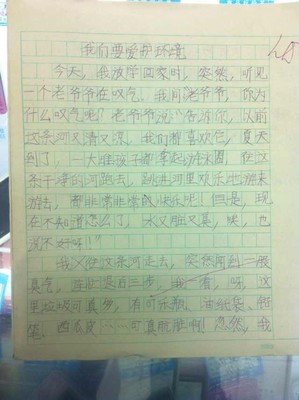 我们要爱护环境
今天，我放学回家时，突然，听见
一个老爷爷在叹气。我问老爷爷，你为
什么叹气呢？老爷爷说：告诉你，以前
这条河又清又凉，我们都喜欢它，夏天
到了，一大准孩子都拿起游泳圈，在这
条干净的河跑去，跳进河里欢乐地游来
游去，都非常非常快乐呢！但是，现
在不知道怎么了，水又脏又臭，唉，也
没不好呀！”
我又往这条河走去，突然闻到一股
臭壳，连忙退后三步，我一看，呀，这
里垃圾可真多，有可乐瓶、纸袋、铅
笔、西瓜皮……可真肮脏啊！忽然，我